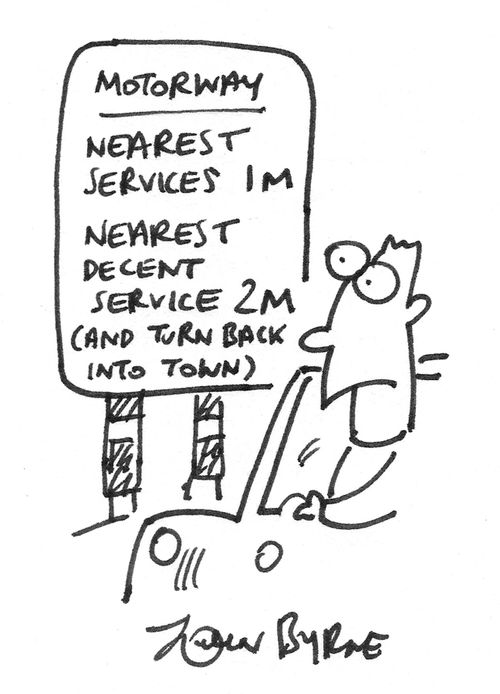 MOTORWAY
NEAREST
SERVICES 1M
NEAREST
DECENT
SERVICE 2M
(AND TURN BACK
INTO TOWN)
John BYRNE